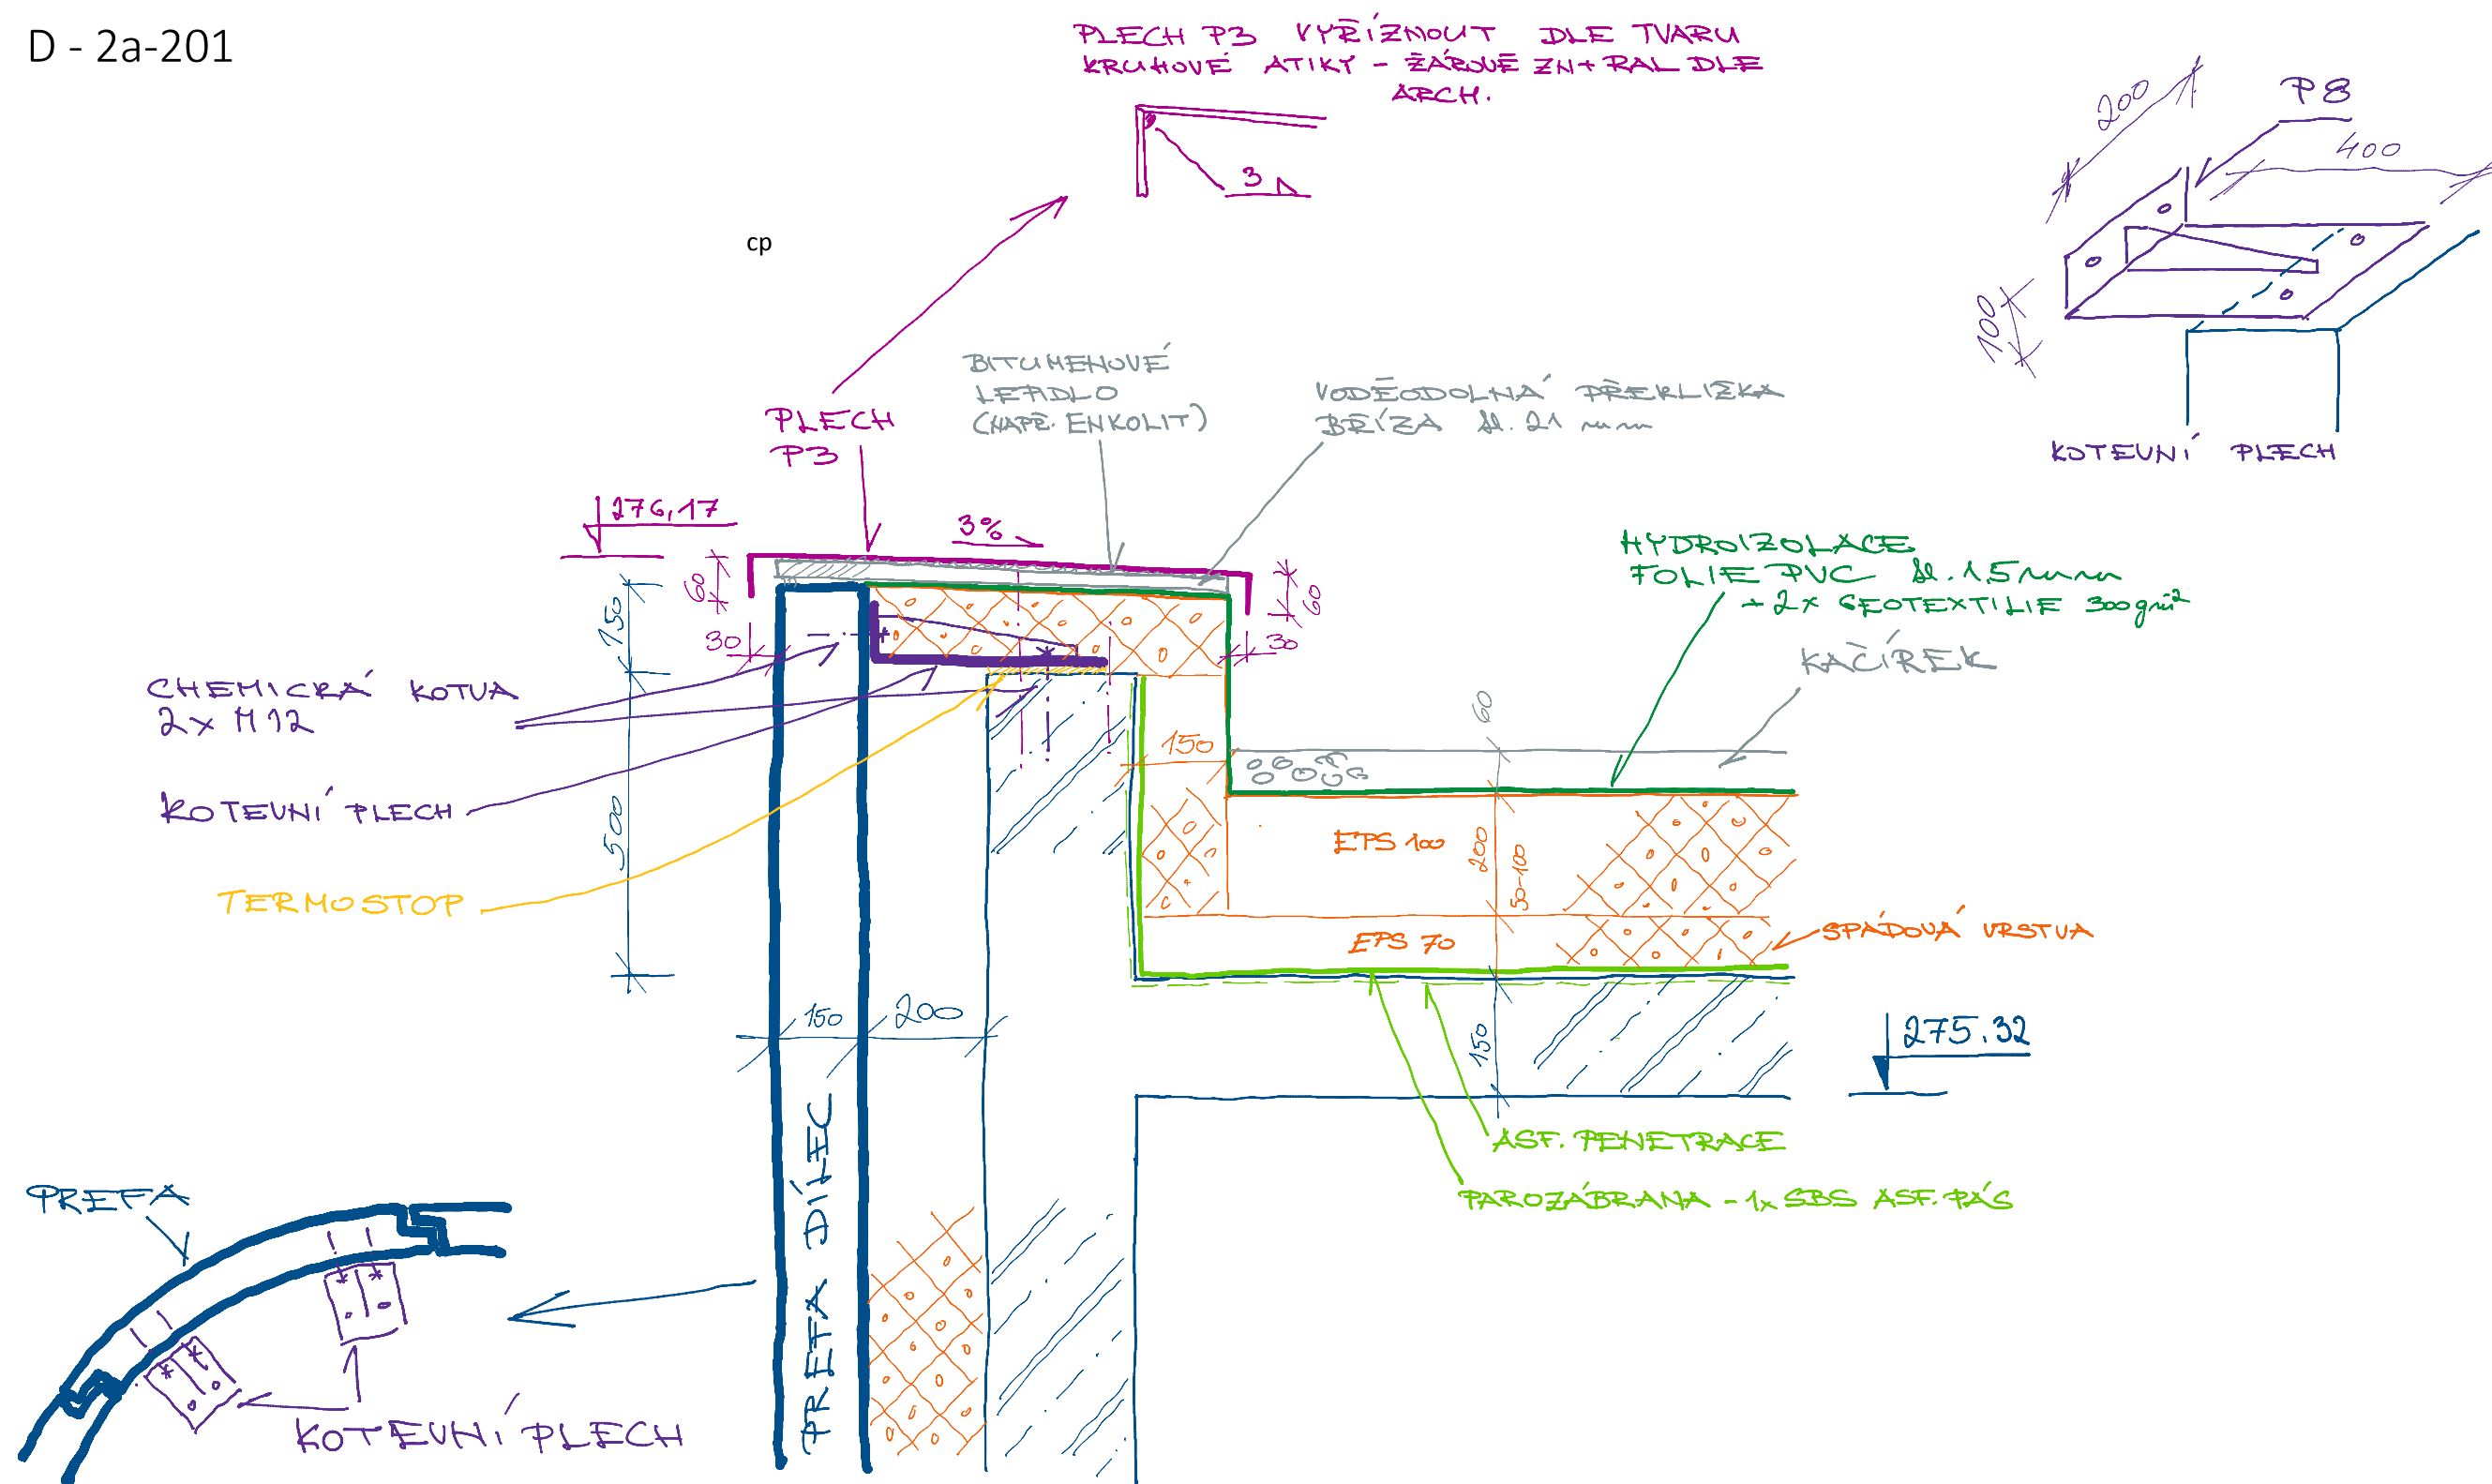 D - 2a-201
PLECH P3 VYŘÍZNOUT DLE TVARU
KRUHOVÉ ATIKY - ŽÁROVĚ ZN + RAL DLE
ARCH.
3
cp
200
P8
400
100
KOTEVNÍ PLECH
BITUMENOVÉ
LEPIDLO
(NAPŘ. ENKOLIT)
VODĚODOLNÁ PŘEKLIŽKA
BŘÍZA tl. 21 mm
PLECH
P3
276,17
3%
60
60
150
30
30
HYDROIZOLACE
FOLIE PVC tl. 1,5 mm
+ 2x GEOTEXTILIE 300 g/m²
KAČÍREK
CHEMICKÁ KOTVA
2x M12
60
150
KOTEVNÍ PLECH
500
EPS 100
200
50-100
TERMOSTOP
EPS 70
SPÁDOVÁ VRSTVA
150
200
150
275.32
ASF. PENETRACE
PAROZÁBRANA - 1x SBS ASF. PÁS
PREFA DÍLEC
PREFA
KOTEVNÍ PLECH